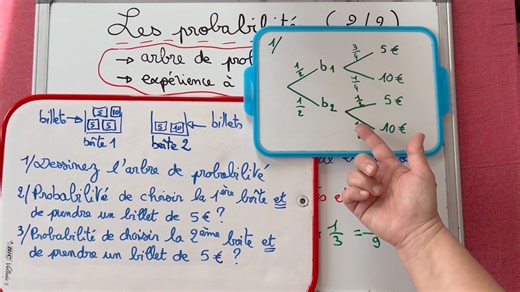 Les probabilités (2/2)
→ arbre de pro
→ expérience à
1/
1/2 b1 3/4 5€
1/4 10€
1/2 b2 1/2 5€
10€
billets → 5 5 10 5 10 ← billets
5 5
boîte 1 boîte 2
1/Dessinez l'arbre de probabilité
2/Probabilité de choisir la 1ère boîte et
de prendre un billet de
5€ ?
3/Probabilité de choisir la 2ème boîte et
de prendre un billet de 5€ ?
= 1/3 =
9